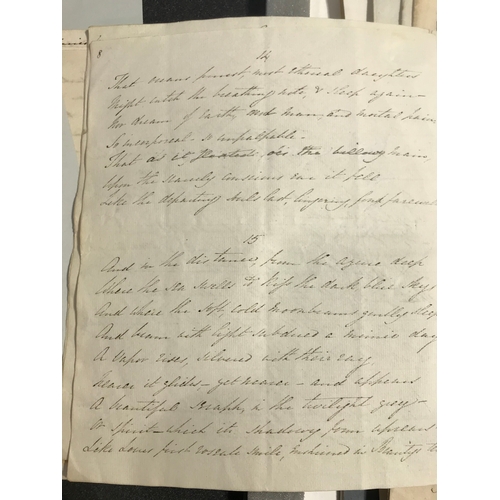 8
14
That oceans purest most ethereal daughters
Might catch the breathing note, & sleep again -
Nor dream of Earth, nor man, and mortal pain,
So incorporeal - so impalpable -
That as it floated o'er the billowy main,
Upon the scarcely conscious ear it fell
Like the departing souls last, lingering, fond farewell
15
And in the distance, from the azure deep
Where the Sea swells to kiss the dark blue sky
And where the soft, cold Moonbeams gently sleep
And beam with light subdued a mimic day
A vapor rises, silvered with their ray
Nearer it glides - yet nearer - and appears
A beautiful Seraph, in the twilight grey -
Or spirit - which its shadowy form uprears
Like Loves first roseate smile, enshrined in Beauty's